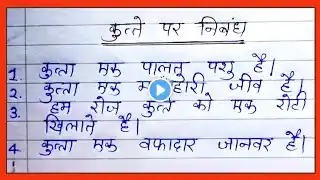 कुत्ते पर निबंध
1. कुत्ता एक पालतू पशु है।
2. कुत्ता एक हारी जीव है।
3. हम रोज कुत्ते को एक रोटी
खिलाते है।
4. कुत्ता एक वफादार जानवर है।